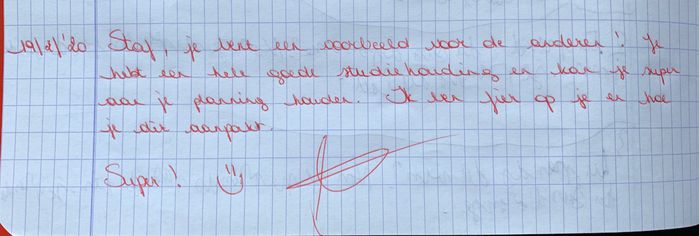 19/2/'20 Staf, je bent een voorbeeld voor de anderen! Je
hebt een hele goede studiehouding en kan je super
aan je planning houden. Ik ben fier op je en hoe
je dit aanpakt.
Super! :)